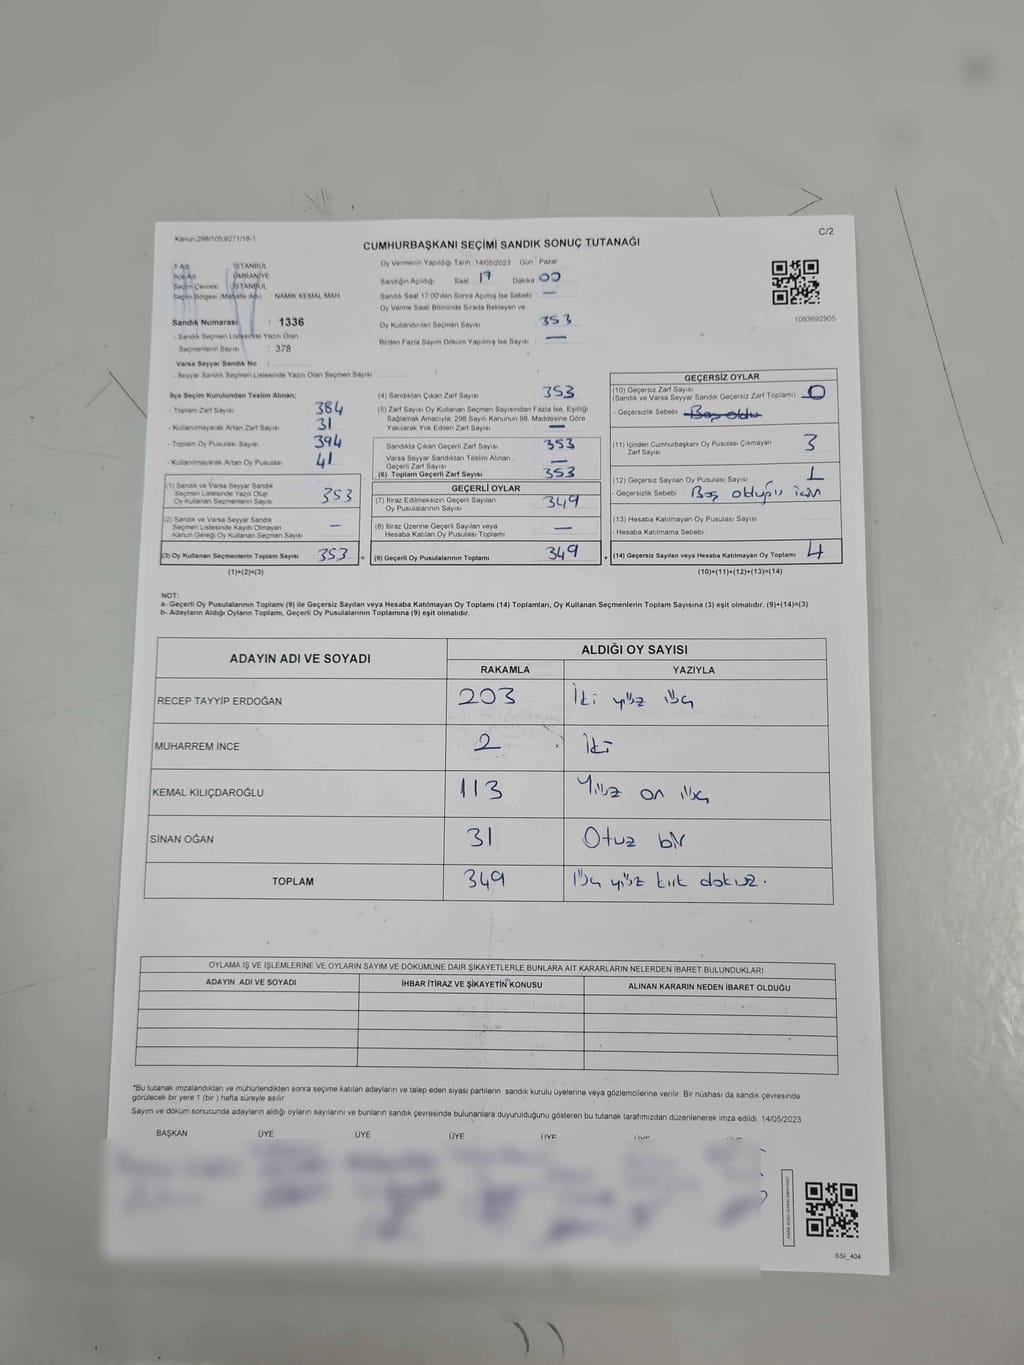 Kanun:298/105,6271/18-1
C/2
CUMHURBAŞKANI SEÇİMİ SANDIK SONUÇ TUTANAĞI
İl Adı İSTANBUL
İlçe Adı ÜMRANİYE
Seçim Çevresi İSTANBUL
Seçim Bölgesi (Mahalle Adı) NAMIK KEMAL MAH
Sandık Numarası : 1336
- Sandık Seçmen Listesinde Yazılı Olan
Seçmenlerin Sayısı : 378
Varsa Seyyar Sandık No :
- Seyyar Sandık Seçmen Listesinde Yazılı Olan Seçmen Sayısı
Oy Vermenin Yapıldığı Tarih :14/05/2023 Gün : Pazar
Sandığın Açıldığı Saat 17 Dakika 00
Sandık Saat 17:00'den Sonra Açılmış İse Sebebi —
Oy Verme Saati Bitiminde Sırada Bekleyen ve
Oy Kullandırılan Seçmen Sayısı 353
Birden Fazla Sayım Döküm Yapılmış İse Sayısı —
1093692905
İlçe Seçim Kurulundan Teslim Alınan;
- Toplam Zarf Sayısı 384
- Kullanılmayarak Artan Zarf Sayısı 31
- Toplam Oy Pusulası Sayısı 394
- Kullanılmayarak Artan Oy Pusulası 41
(1) Sandık ve Varsa Seyyar Sandık
Seçmen Listesinde Yazılı Olup
Oy Kullanan Seçmenlerin Sayısı 353
(2) Sandık ve Varsa Seyyar Sandık
Seçmen Listesinde Kayıtlı Olmayan
Kanun Gereği Oy Kullanan Seçmen Sayısı —
(3) Oy Kullanan Seçmenlerin Toplam Sayısı 353 =
(1)+(2)=(3)
(4) Sandıktan Çıkan Zarf Sayısı 353
(5) Zarf Sayısı Oy Kullanan Seçmen Sayısından Fazla İse, Eşitliği
Sağlamak Amacıyla, 298 Sayılı Kanunun 98. Maddesine Göre
Yakılarak Yok Edilen Zarf Sayısı —
Sandıkta Çıkan Geçerli Zarf Sayısı 353
Varsa Seyyar Sandıktan Teslim Alınan
Geçerli Zarf Sayısı —
(6) Toplam Geçerli Zarf Sayısı 353
GEÇERLİ OYLAR
(7) İtiraz Edilmeksizin Geçerli Sayılan
Oy Pusulalarının Sayısı 349
(8) İtiraz Üzerine Geçerli Sayılan veya
Hesaba Katılan Oy Pusulası Toplamı —
(9) Geçerli Oy Pusulalarının Toplamı 349 +
GEÇERSİZ OYLAR
(10) Geçersiz Zarf Sayısı
(Sandık ve Varsa Seyyar Sandık Geçersiz Zarf Toplamı) 0
- Geçersizlik Sebebi : Boş oldu
(11) İçinden Cumhurbaşkanı Oy Pusulası Çıkmayan
Zarf Sayısı 3
(12) Geçersiz Sayılan Oy Pusulası Sayısı 1
- Geçersizlik Sebebi Boş olduğu için
(13) Hesaba Katılmayan Oy Pusulası Sayısı
- Hesaba Katılmama Sebebi
(14) Geçersiz Sayılan veya Hesaba Katılmayan Oy Toplamı 4
(10)+(11)+(12)+(13)=(14)
NOT:
a- Geçerli Oy Pusulalarının Toplamı (9) ile Geçersiz Sayılan veya Hesaba Katılmayan Oy Toplamı (14) Toplamları, Oy Kullanan Seçmenlerin Toplam Sayısına (3) eşit olmalıdır. (9)+(14)=(3)
b- Adayların Aldığı Oyların Toplamı, Geçerli Oy Pusulalarının Toplamına (9) eşit olmalıdır.
ADAYIN ADI VE SOYADI
ALDIĞI OY SAYISI
RAKAMLA YAZIYLA
RECEP TAYYİP ERDOĞAN 203 İki yüz üç
MUHARREM İNCE 2 İki
KEMAL KILIÇDAROĞLU 113 Yüz on üç
SİNAN OĞAN 31 Otuz bir
TOPLAM 349 Üç yüz kırk dokuz.
OYLAMA İŞ VE İŞLEMLERİNE VE OYLARIN SAYIM VE DÖKÜMÜNE DAİR ŞİKAYETLERLE BUNLARA AİT KARARLARIN NELERDEN İBARET BULUNDUKLARI
ADAYIN ADI VE SOYADI İHBAR İTİRAZ VE ŞİKAYETİN KONUSU ALINAN KARARIN NEDEN İBARET OLDUĞU
*Bu tutanak imzalandıktan ve mühürlendikten sonra seçime katılan adayların ve talep eden siyasi partilerin sandık kurulu üyelerine veya gözlemcilerine verilir. Bir nüshası da sandık çevresinde
görülecek bir yere 1 (bir) hafta süreyle asılır.
Sayım ve döküm sonucunda adayların aldığı oyların sayılarını ve bunların sandık çevresinde bulunanlara duyurulduğunu gösteren bu tutanak tarafımızdan düzenlenerek imza edildi. 14/05/2023
BAŞKAN ÜYE ÜYE ÜYE ÜYE ÜYE ÜYE
SSİ_404